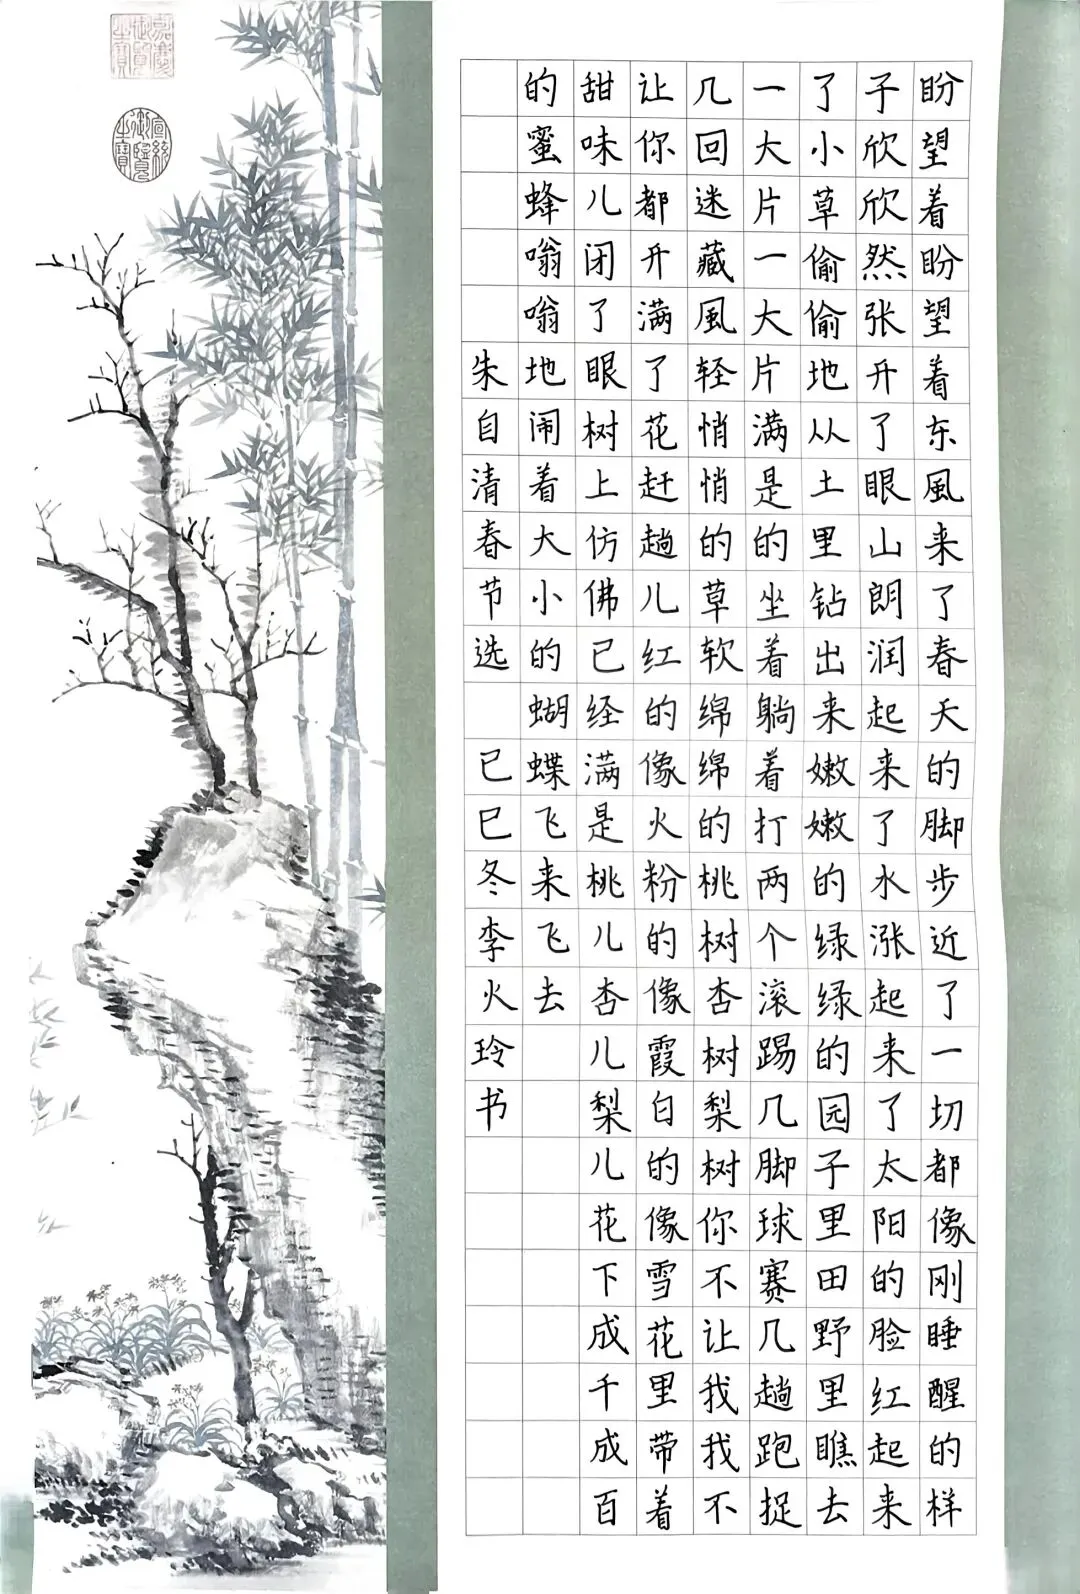 盼望着盼望着东風来了春天的脚步近了一切都像刚睡醒的样
子欣欣然张开了眼山朗润起来了水涨起来了太阳的脸红起来
了小草偷偷地从土里钻出来嫩嫩的绿绿的园子里田野里瞧去
一大片一大片满是的坐着躺着打两个滚踢几脚球赛几趟跑捉
几回迷藏風轻悄悄的草软绵绵的桃树杏树梨树你不让我我不
让你都开满了花赶趟儿红的像火粉的像霞白的像雪花里带着
甜味儿闭了眼树上仿佛已经满是桃儿杏儿梨儿花下成千成百
的蜜蜂嗡嗡地闹着大小的蝴蝶飞来飞去
朱自清春节选 已巳冬李火玲书
嘉慶御覽之寶
宣統御覽之寶